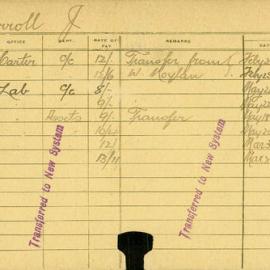 rroll J
OFFICE DEPT. RATE OF PAY REMARKS DAT
Carter c/c 12/- Transfer from Feby 2
15/6 W. Moylan Feby 23
Lab c/c 8/- May 2
" 9/- May 2
" Assets 9/- Transfer May 18
10/4 May 2
12/ Mar 3
13/4 Mar 2
Transferred to New System
Transferred to New System